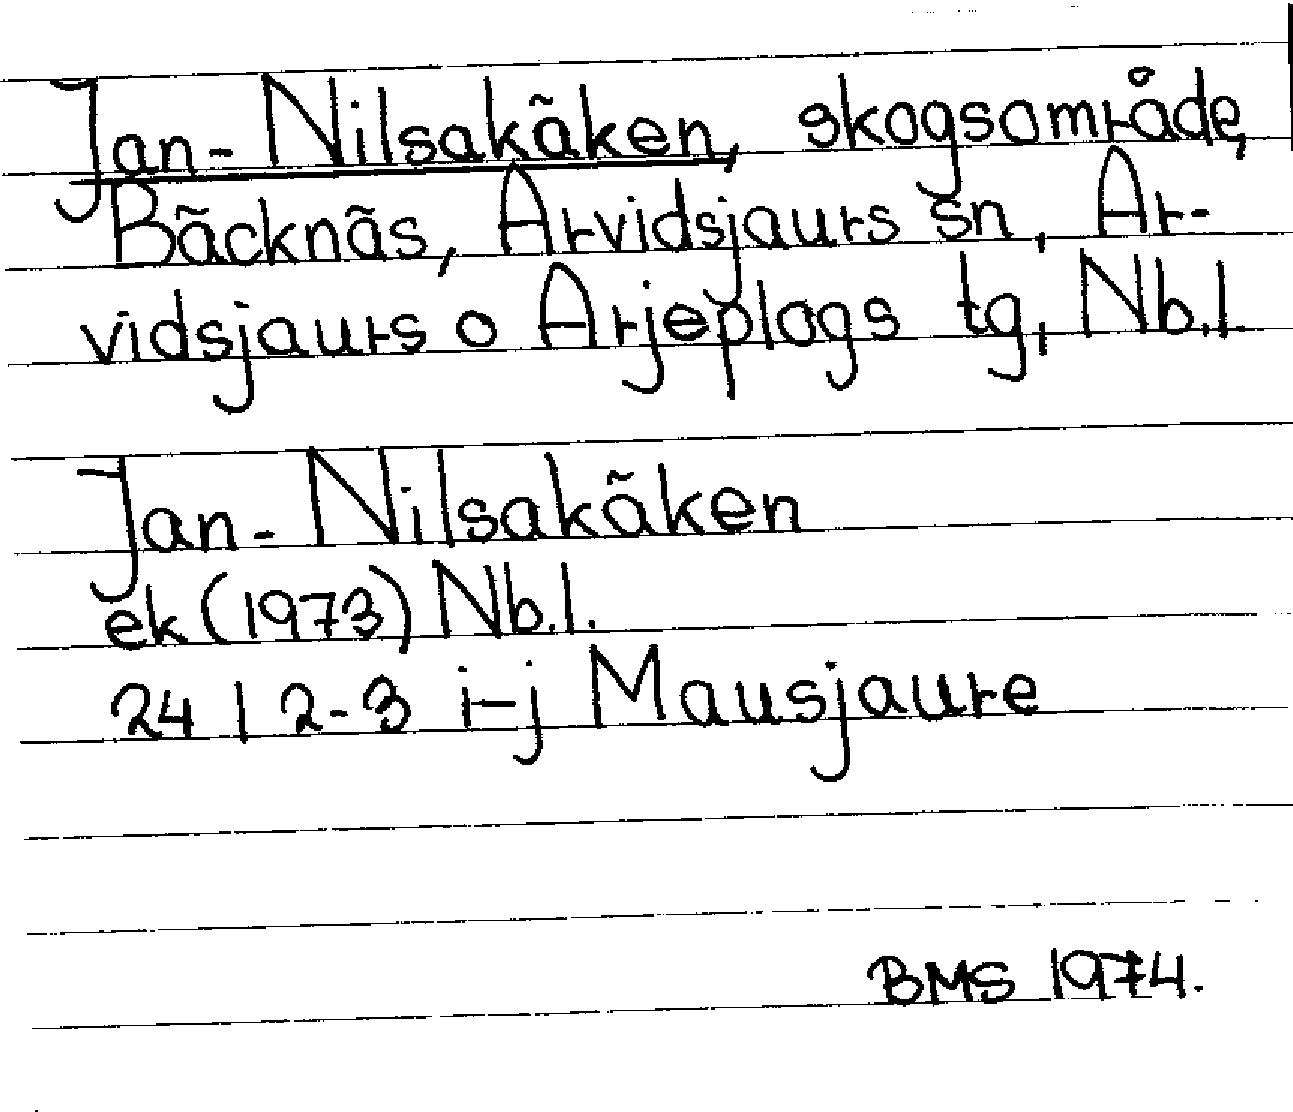 Jan-Nilsakäken, skogsområde,
Bäcknäs, Arvidsjaurs sn, Ar-
vidsjaurs o Arjeplogs tg, Nb.l.
Jan-Nilsakäken
ek (1973) Nb.l.
24 I 2-3 i-j Mausjaure
BMS 1974.